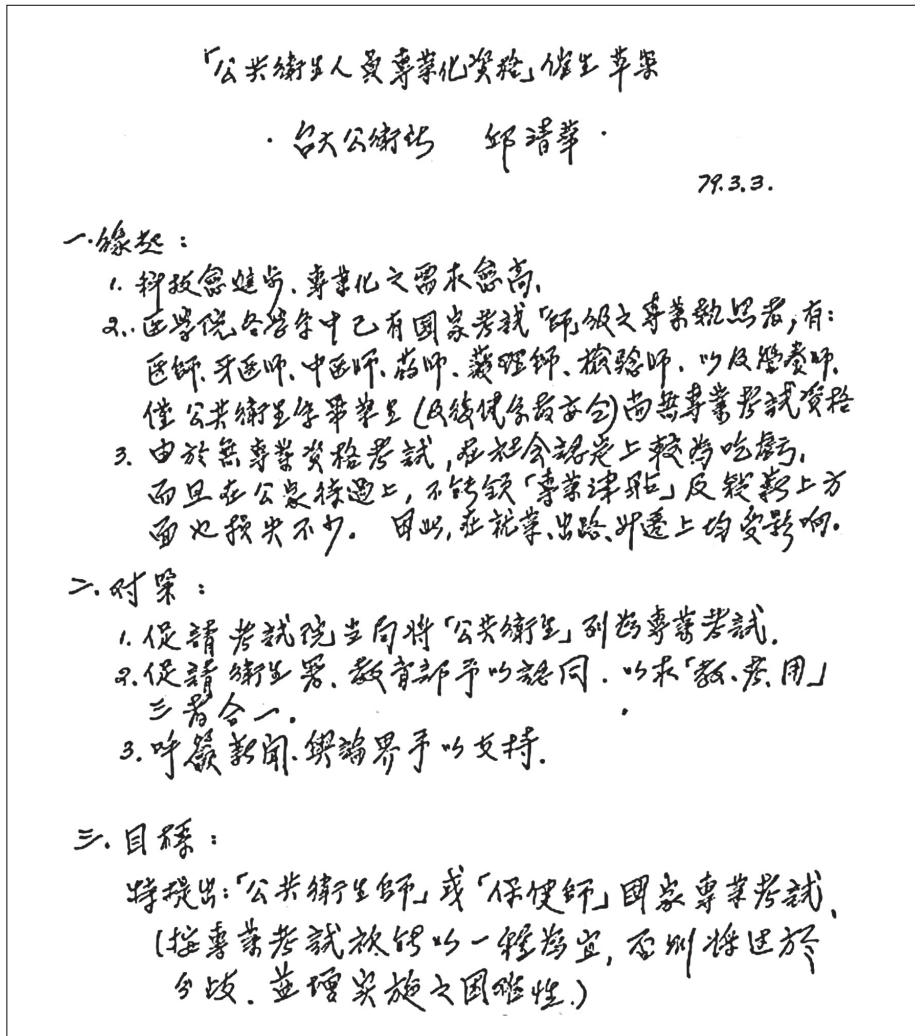 「公共衛生人員專業化資格」催生草案
·台大公衛所 邱清華·
79.3.3.
一.緣起：
1. 科技愈進步、專業化之需求愈高、
2. 医學院各學系中已有國家考試「師」級之專業執照者，有：
医師、牙医師、中医師、葯師、護理師、檢驗師、以及營養師、
僅公共衛生系畢業生(及復健系尚無專業考試資格
3. 由於無專業資格考試，在社会認定上較為吃虧、
而且在公家待遇上，不能領「專業津貼」及敍薪上方
面也損失不少. 因此，在就業、出路、升遷上均受影响。
二.对策：
1. 促請考試院当局將「公共衛生」列為專業考試.
2. 促請衛生署、教育部予以認同.以求「教、考、用」
三者合一.
3. 呼籲新聞、輿論界予以支持.
三.目標：
特提出:「公共衛生師」或「保健師」國家專業考試、
(按專業考試祇能以一種為宜，否則將过於
分歧.並增实施之困难性.)